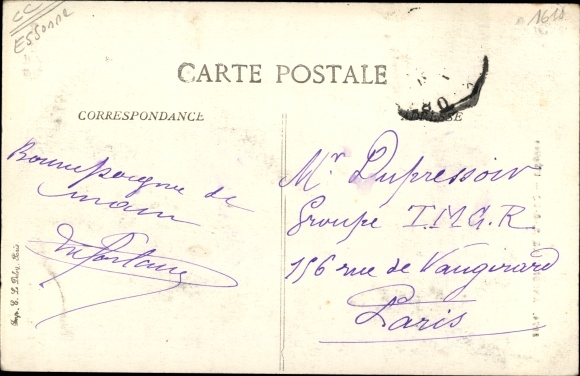 CC
ESSonne
CARTE POSTALE
CORRESPONDANCE
ADRESSE
Bonne poigne de
main
Mr Dupressoir
Groupe T.M.G.R
156 rue de Vaugirard
Paris
Imp. E. Le Deley, Paris